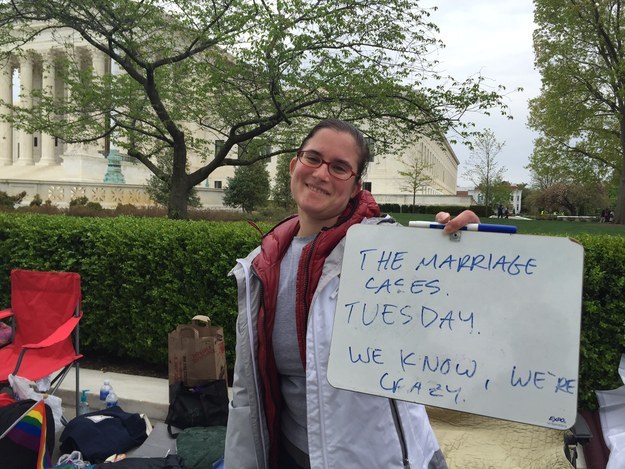 THE MARRIAGE
CASES.
TUESDAY.
WE KNOW, WE'RE
CRAZY.
EXPO